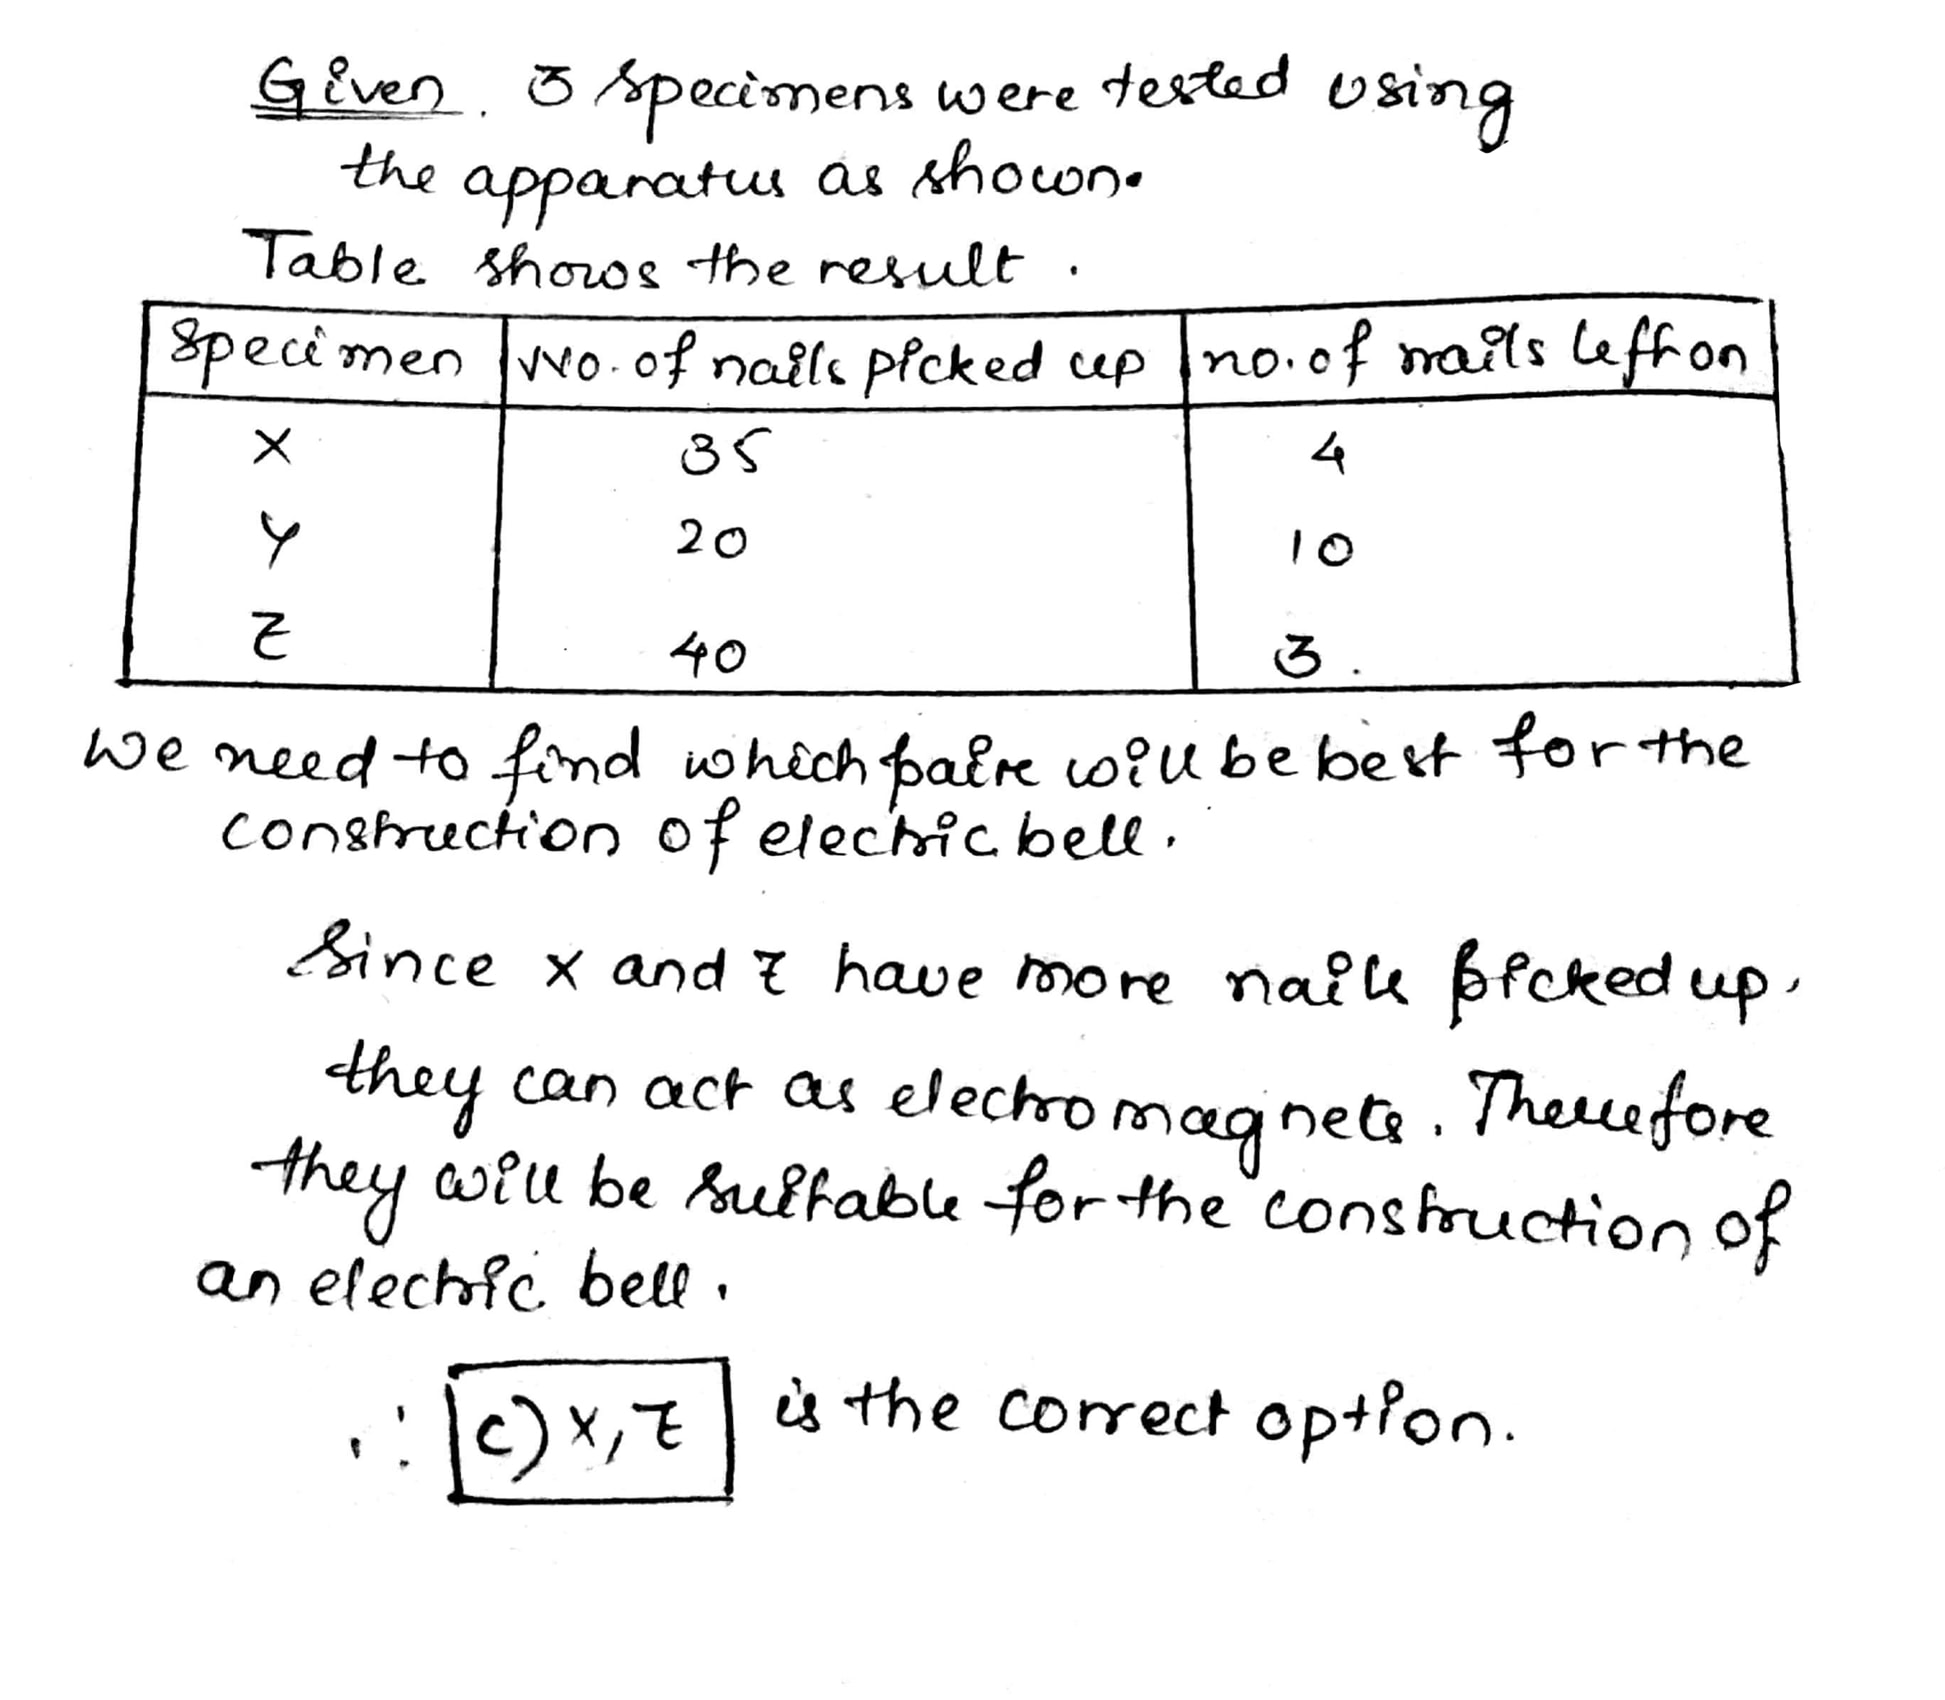 Given. 3 specimens were tested using
the apparatus as shown.
Table shows the result.
Specimen No. of nails picked up no. of nails left on
X 35 4
Y 20 10
Z 40 3.
We need to find which paire will be best for the
construction of electric bell.
Since X and Z have more nails picked up,
they can act as electromagnets. Therefore
they will be suitable for the construction of
an electric bell.
∴ c) X, Z is the correct option.